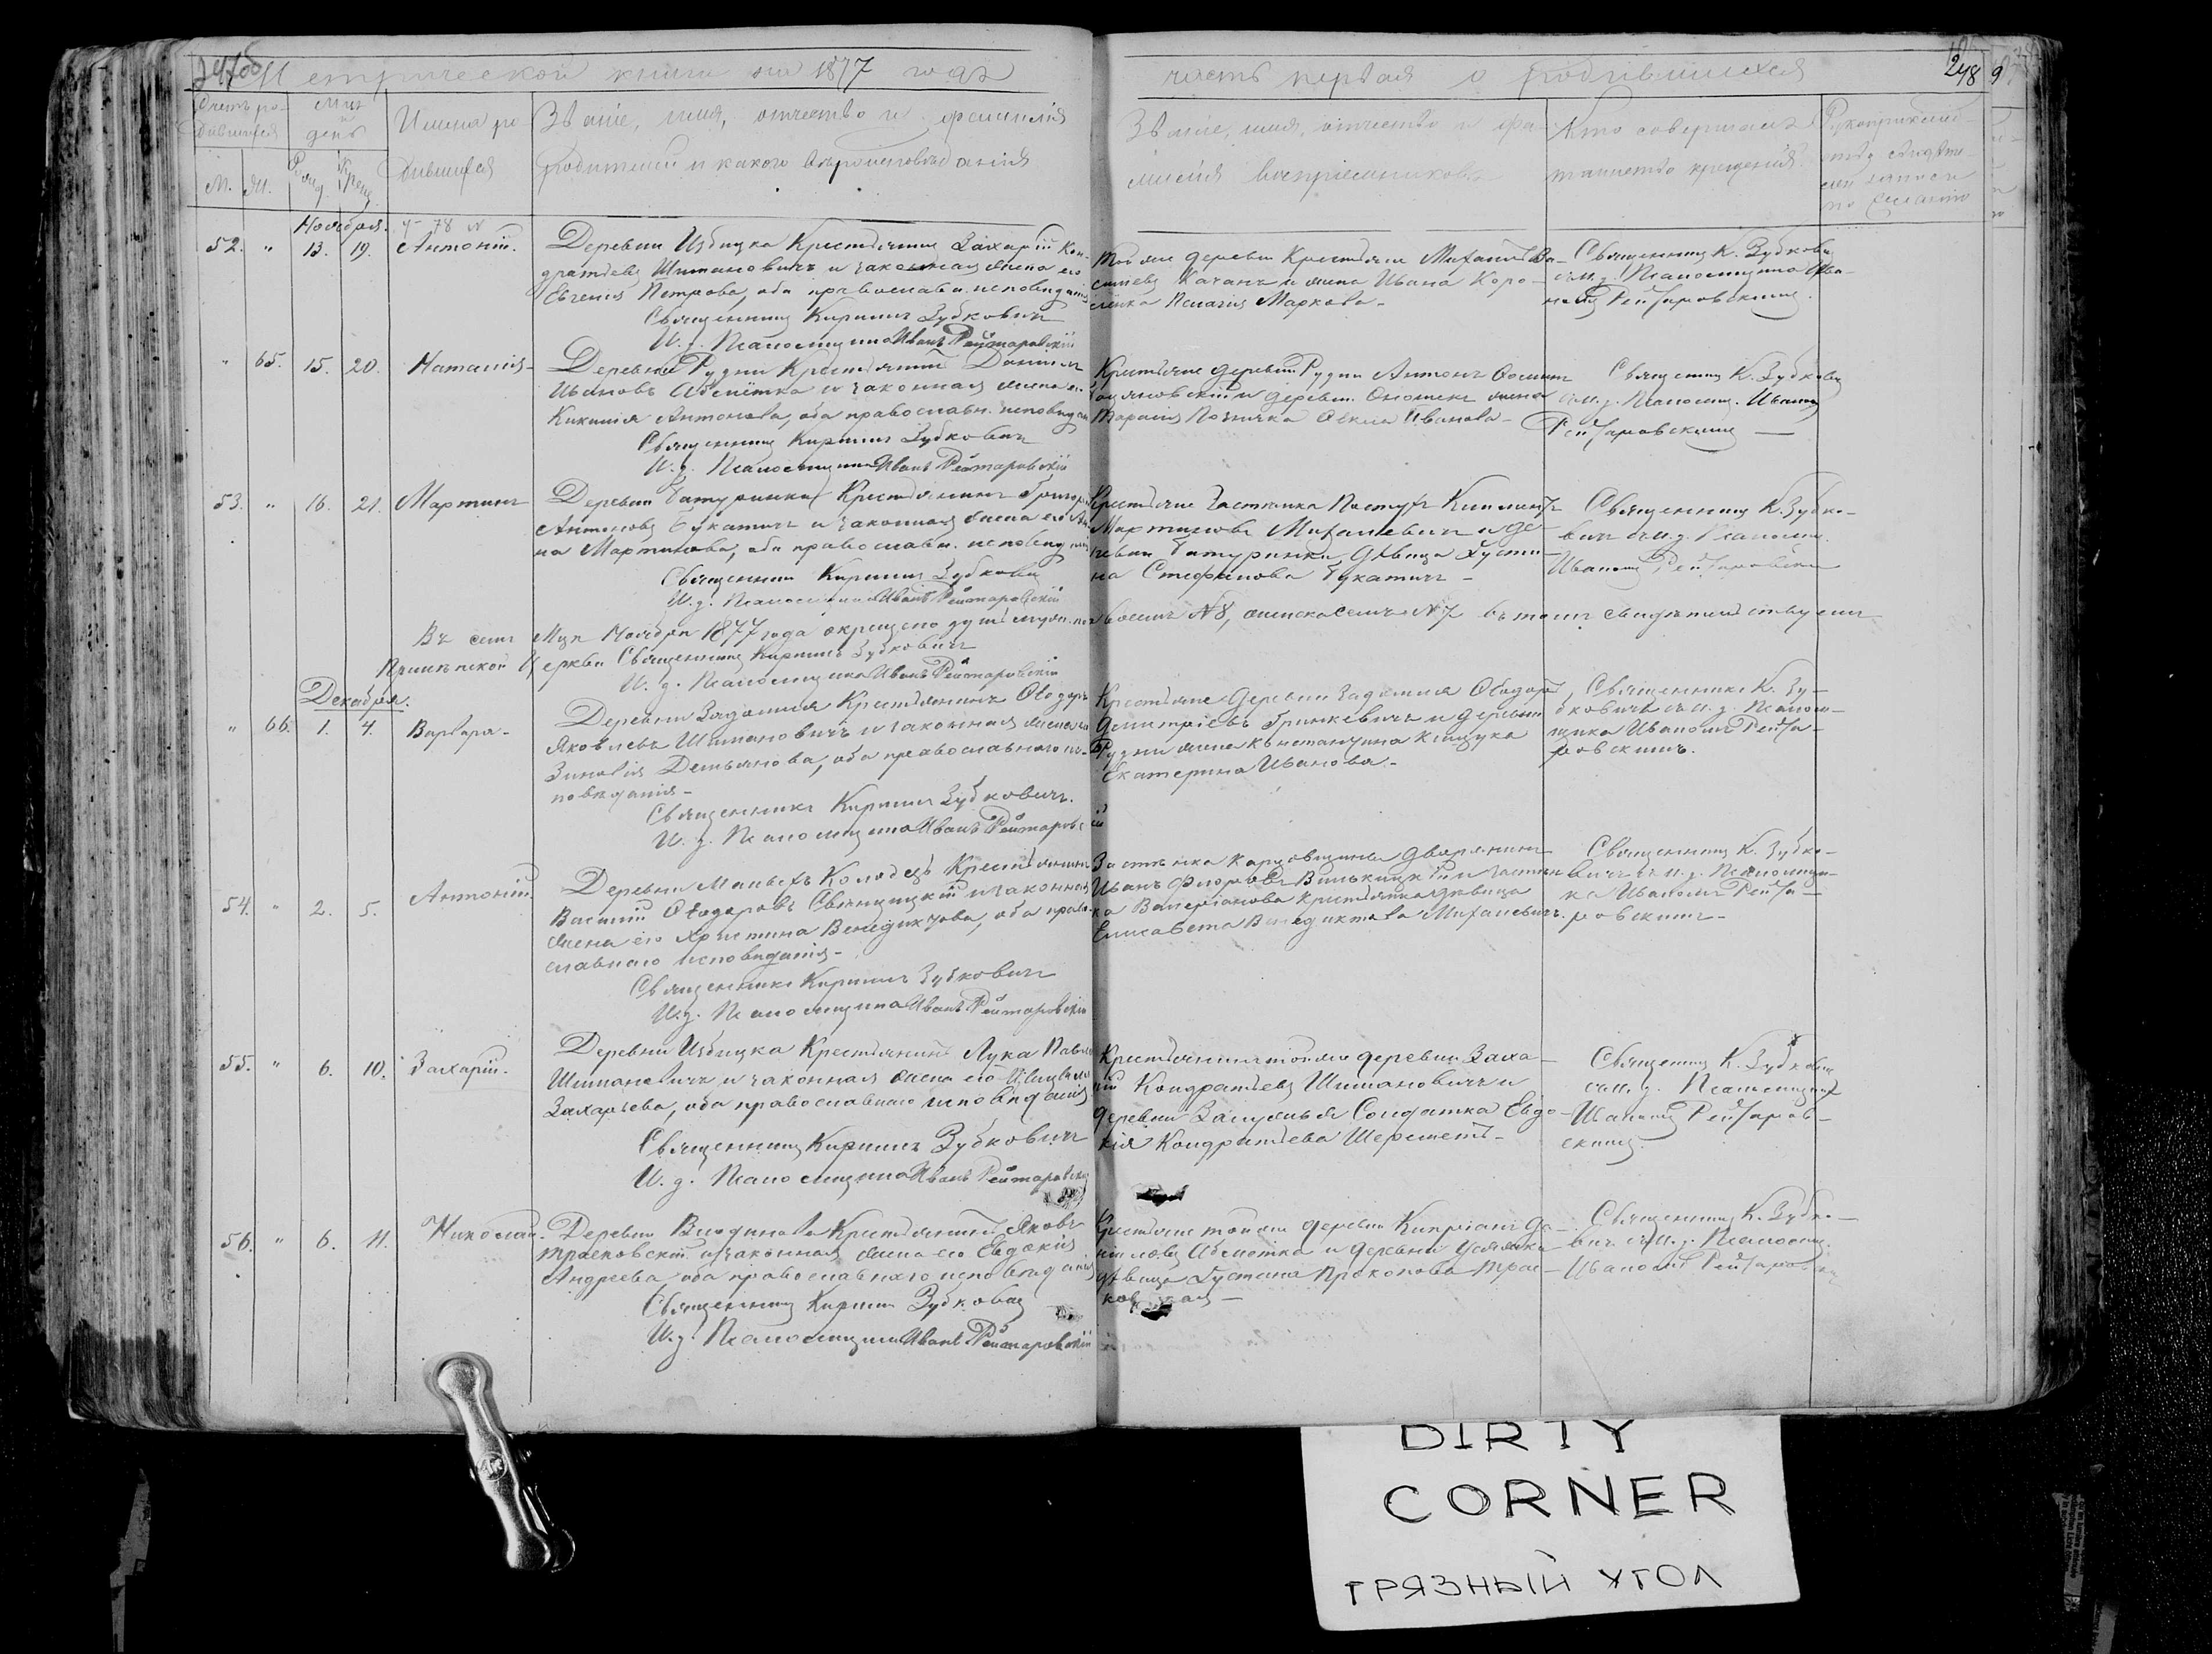 Метрической книги на 1877 годъ
часть первая о родившихся
248
Счетъ ро-
дившихся
Мцъ
и
день
Имена ро-
дившихся
Званіе, имя, отчество и фамилія
родителей и какого вѣроисповѣданія
Званіе, имя, отчество и фа-
милія воспріемниковъ
Кто совершалъ
таинство крещенія
Рукоприклад-
ство свидѣте-
лей записи
по желанію
М. Ж. Рожд. Крещ.
Ноября.
52. " 13. 19. Антоній.
Деревни Избицка Крестьянинъ Захарій Кон-
дратьевъ Шимановичъ и законная жена его
Евгенія Петрова, оба православн. исповѣданія
Священникъ Кириллъ Зубковичъ
И. д. Псаломщика Иванъ Рейтаровскій
Той же деревни Крестьяне Михаилъ Ва-
сильевъ Качанъ и жена Ивана Коро-
лика Пелагія Маркова -
Священникъ К. Зубковичъ
съ и. д. Псаломщика Ива-
номъ Рейтаровскимъ.
" 65. 15. 20. Наталія -
Деревни Рудни Крестьянинъ Даніилъ
Ивановъ Аблётка и законная жена его
Киликія Антонова, оба православн. исповѣдан.
Священникъ Кириллъ Зубковичъ
И. д. Псаломщика Иванъ Рейтаровскій
Крестьяне деревни Рудни Антонъ
и деревни жена
Тарасія Позняка Ѳекла Иванова -
Священникъ К. Зубковичъ
съ и. д. Псаломщ. Иваномъ
Рейтаровскимъ —
53. " 16. 21. Мартинъ
Деревни Батуринки Крестьянинъ Григорій
Антоновъ Букатичъ и законная жена его Ан-
на Мартинова, оба православн. исповѣданія
Священникъ Кириллъ Зубковичъ
И. д. Псаломщика Иванъ Рейтаровскій
Крестьяне Застѣнка Климентъ
Мартиновъ Михалевичъ и де-
ревни Батуринки дѣвица Густи-
на Стефанова Букатичъ -
Священникъ К. Зубко-
вичъ съ и. д. Псаломщ.
Иваномъ Рейтаровским
Въ семъ Мцѣ Ноябрѣ 1877 года окрещено душъ мужеск. пол восемь №8, женска семь №7 въ томъ свидѣтельствуемъ
Церкви Священникъ Кириллъ Зубковичъ
И. д. Псаломщика Иванъ Рейтаровскій
Декабря.
" 66. 1. 4. Варвара -
Деревни Задомля Крестьянинъ Ѳеодоръ
Яковлевъ Шимановичъ и законная жена его
Зиновія Демьянова, оба православнаго ис-
повѣданія -
Священникъ Кириллъ Зубковичъ.
И. д. Псаломщика Иванъ Рейтаровскій
Крестьяне деревни Задомля Ѳеодоръ
Дмитріевъ Гринкевичъ и деревни
Рудни жена Константина Клищука
Екатерина Иванова -
Священникъ К. Зу-
бковичъ съ и. д. Псалом-
щика Иваномъ Рейта-
ровскимъ.
54. " 2. 5. Антоній.
Деревни Малыхъ Колодезь Крестьянинъ
Василій Ѳеодоровъ Свенцицкій и законная
жена его Христина Венедиктова, оба право-
славнаго исповѣданія -
Священникъ Кириллъ Зубковичъ
И. д. Псаломщика Иванъ Рейтаровскій
Застѣнка Карповщины дворянинъ
Иванъ Флоровъ Вилькицкій и застѣн-
ка Валеріанова крестьянка дѣвица
Елисавета Венедиктова Михалевичъ.
Священникъ К. Зубко-
вичъ съ и. д. Псаломщи-
ка Иваномъ Рейта-
ровскимъ -
55. " 6. 10. Захарій.
Деревни Избицка Крестьянинъ Лука Павлов
Шимановичъ и законная жена его
Захарьева, оба православнаго исповѣданія
Священникъ Кириллъ Зубковичъ
И. д. Псаломщика Иванъ Рейтаровскій
Крестьянинъ той же деревни Заха-
рій Кондратьевъ Шимановичъ и
деревни Солдатка Евдо-
кія Кондратьева Шереметъ -
Священникъ К. Зубковичъ
съ и. д. Псаломщика
Иваномъ Рейтаров-
скимъ.
56. " 6. 11. Николай.
Деревни Крестьянинъ Яковъ
Трасковскій и законная жена его Евдокія
Андреева, оба православнаго исповѣданія
Священникъ Кириллъ Зубковичъ
И. д. Псаломщика Иванъ Рейтаровскій
Крестьяне той же деревни Кипріанъ Да-
ніиловъ Аблетка и деревни
дѣвица Густина Прокопова Трас-
ковская —
Священникъ К. Зубко-
вичъ съ и. д. Псаломщ.
Иваномъ Рейтаровским
DIRTY
CORNER
ГРЯЗНЫЙ УГОЛ